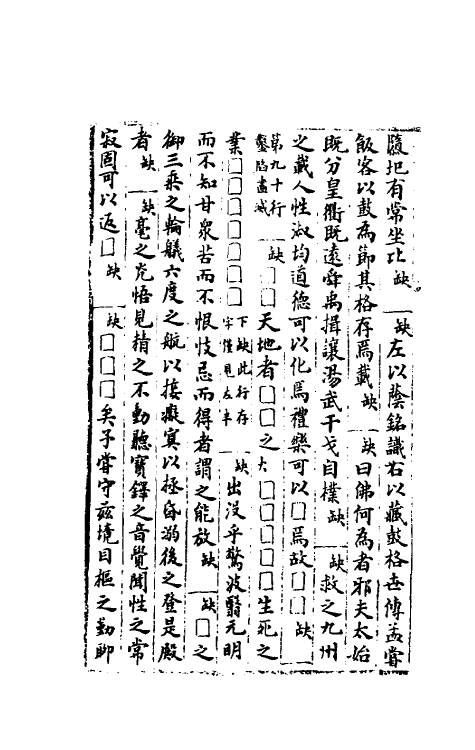 履圯有常坐比缺　缺左以蔭銘識右以藏鼓格古傅孟嘗
飯客以鼓為節其格存焉載缺　缺曰佛何為者邪夫太始
既分皇衢既遠舜禹揖讓湯武干戈自樸缺　缺救之九州
之藏人性淑均道德可以化焉禮樂可以□焉故□□缺
第九十行
鑿陷盡滅　缺□□天地者□□之大□□□□□□生死之
業□□□□□□□下缺此行存
字僅見左半　缺出沒乎驚波翳元明
而不知甘衆苦而不恨忮忌而得者謂之能放缺　缺□之
御三乘之輪艤六度之航以接癡冥以拯昏溺後之登是殿
者缺　缺毫之光悟見精之不動聽寶鐸之音覺聞性之常
寂固可以返□缺　缺□□□矣予嘗守茲境目樞之勤聊